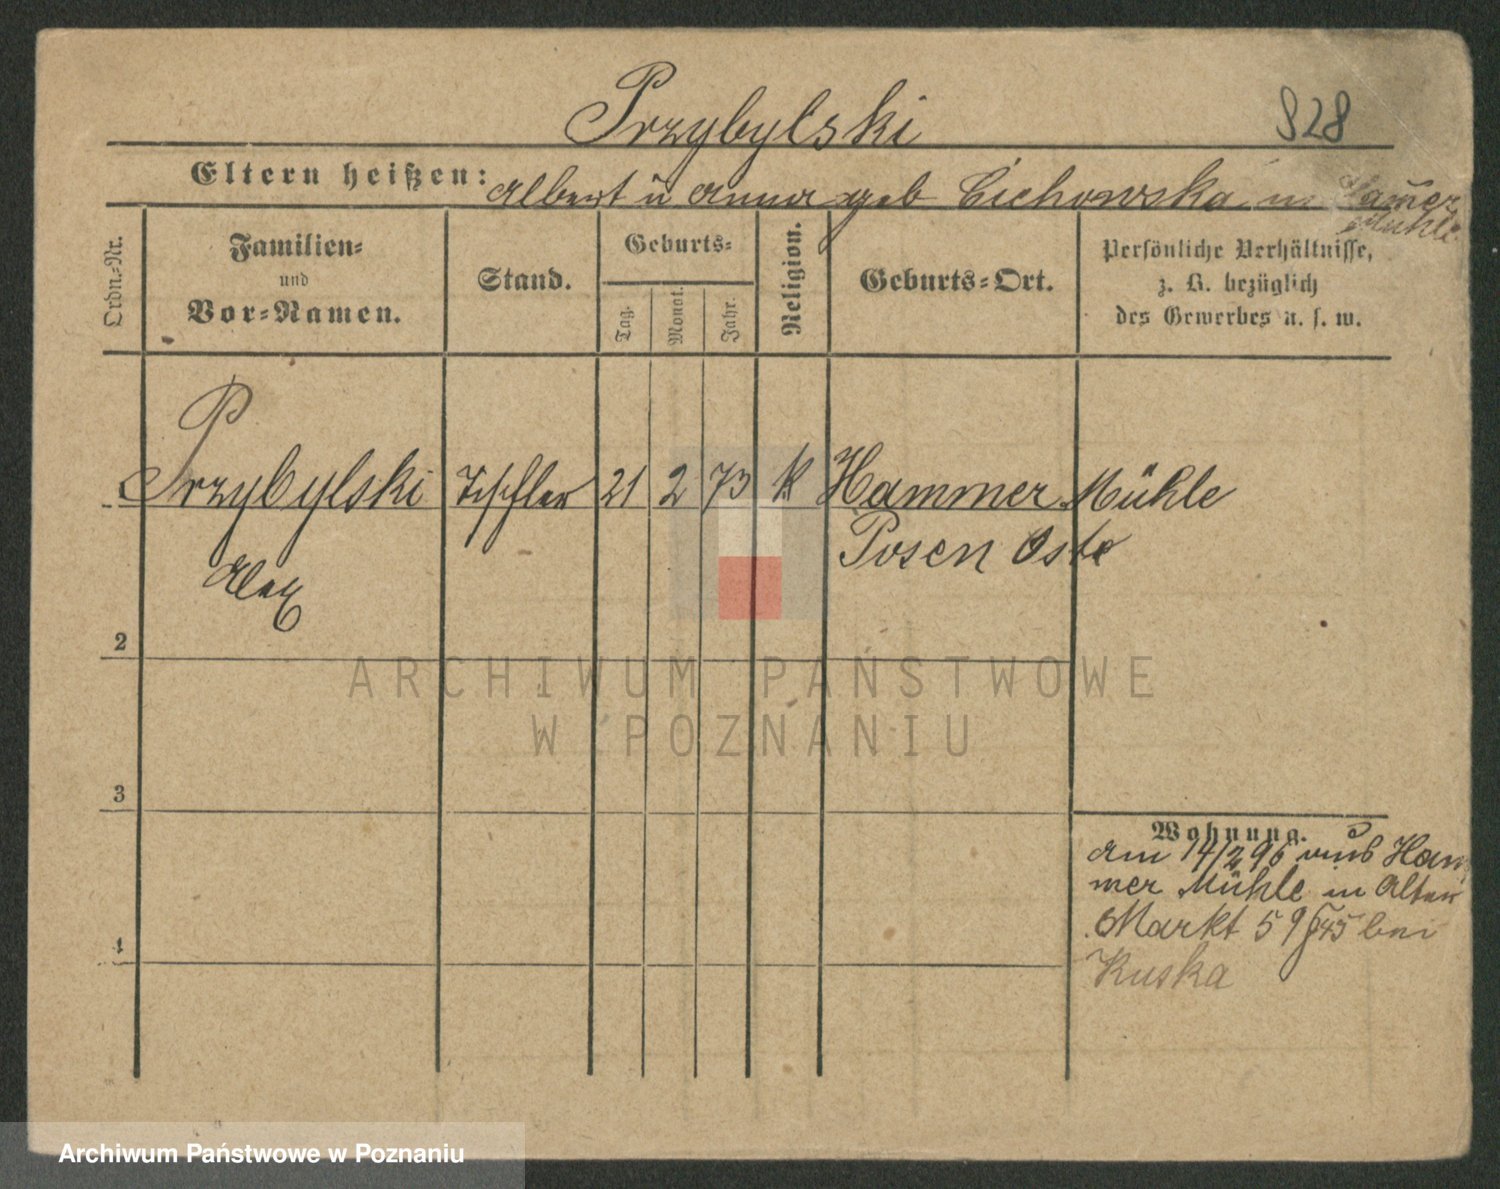 Przybylski 828
Eltern heißen: Albert u Anna geb Cichowska in Ham̄er
Mühle
Ordn.-Nr.
Familien-
und
Vor-Namen.
Stand.
Geburts-
Tag.
Monat.
Jahr.
Religion.
Geburts-Ort.
Persönliche Verhältnisse,
z. B. bezüglich
des Gewerbes u. s. w.
Przybylski Tischler 21 2 73 k Hammer Mühle
Posen Oste
Alex
2
3
4
Wohnung.
am 14/2 96 aus Ham
mer Mühle in Alter
Markt 59 bei
Kuska
ARCHIWUM PAŃSTWOWE
W POZNANIU
Archiwum Państwowe w Poznaniu